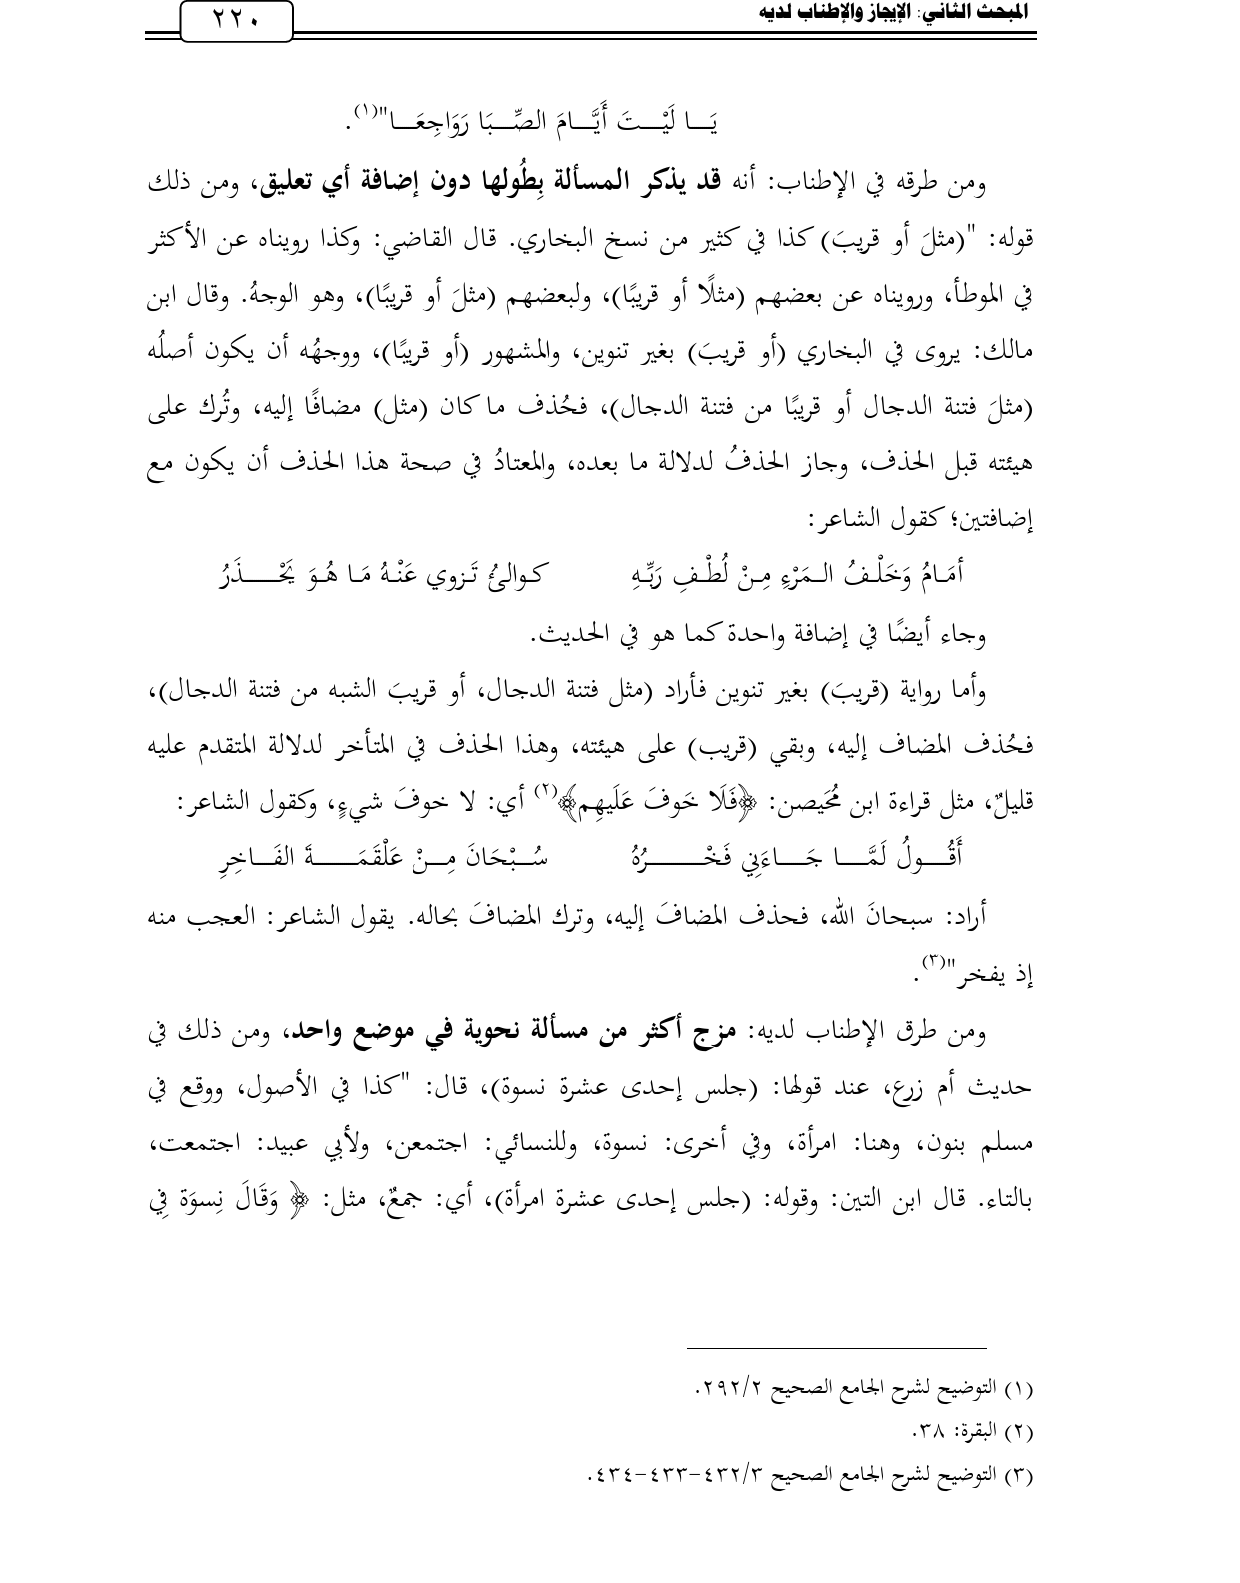 المبحث الثاني: الإيجاز والإطناب لديه
٢٢٠
يَـــا لَيْـــتَ أَيَّـــامَ الصِّـــبَا رَوَاجِعَـــا"(١).
ومن طرقه في الإطناب: أنه قد يذكر المسألة بِطُولها دون إضافة أي تعليق، ومن ذلك
قوله: "(مثلَ أو قريبَ) كذا في كثير من نسخ البخاري. قال القاضي: وكذا رويناه عن الأكثر
في الموطأ، ورويناه عن بعضهم (مثلًا أو قريبًا)، ولبعضهم (مثلَ أو قريبًا)، وهو الوجهُ. وقال ابن
مالك: يروى في البخاري (أو قريبَ) بغير تنوين، والمشهور (أو قريبًا)، ووجهُه أن يكون أصلُه
(مثلَ فتنة الدجال أو قريبًا من فتنة الدجال)، فحُذف ما كان (مثل) مضافًا إليه، وتُرك على
هيئته قبل الحذف، وجاز الحذفُ لدلالة ما بعده، والمعتادُ في صحة هذا الحذف أن يكون مع
إضافتين؛ كقول الشاعر:
أمَـامُ وَخَلْـفُ الـمَرْءِ مِـنْ لُطْـفِ رَبِّـهِ كـوالئُ تَـزوي عَنْـهُ مَـا هُـوَ يَحْـــــذَرُ
وجاء أيضًا في إضافة واحدة كما هو في الحديث.
وأما رواية (قريبَ) بغير تنوين فأراد (مثل فتنة الدجال، أو قريبَ الشبه من فتنة الدجال)،
فحُذف المضاف إليه، وبقي (قريب) على هيئته، وهذا الحذف في المتأخر لدلالة المتقدم عليه
قليلٌ، مثل قراءة ابن مُحَيصن: ﴿فَلَا خَوفَ عَلَيهِم﴾(٢) أي: لا خوفَ شيءٍ، وكقول الشاعر:
أَقُـــولُ لَمَّـــا جَـــاءَنِي فَخْـــــــرُهُ سُـــبْحَانَ مِـــنْ عَلْقَمَـــــةَ الفَـــاخِرِ
أراد: سبحانَ الله، فحذف المضافَ إليه، وترك المضافَ بحاله. يقول الشاعر: العجب منه
إذ يفخر"(٣).
ومن طرق الإطناب لديه: مزج أكثر من مسألة نحوية في موضع واحد، ومن ذلك في
حديث أم زرع، عند قولها: (جلس إحدى عشرة نسوة)، قال: "كذا في الأصول، ووقع في
مسلم بنون، وهنا: امرأة، وفي أخرى: نسوة، وللنسائي: اجتمعن، ولأبي عبيد: اجتمعت،
بالتاء. قال ابن التين: وقوله: (جلس إحدى عشرة امرأة)، أي: جمعٌ، مثل: ﴿ وَقَالَ نِسوَة فِي
(١) التوضيح لشرح الجامع الصحيح ٢٩٢/٢.
(٢) البقرة: ٣٨.
(٣) التوضيح لشرح الجامع الصحيح ٤٣٢/٣-٤٣٣-٤٣٤.